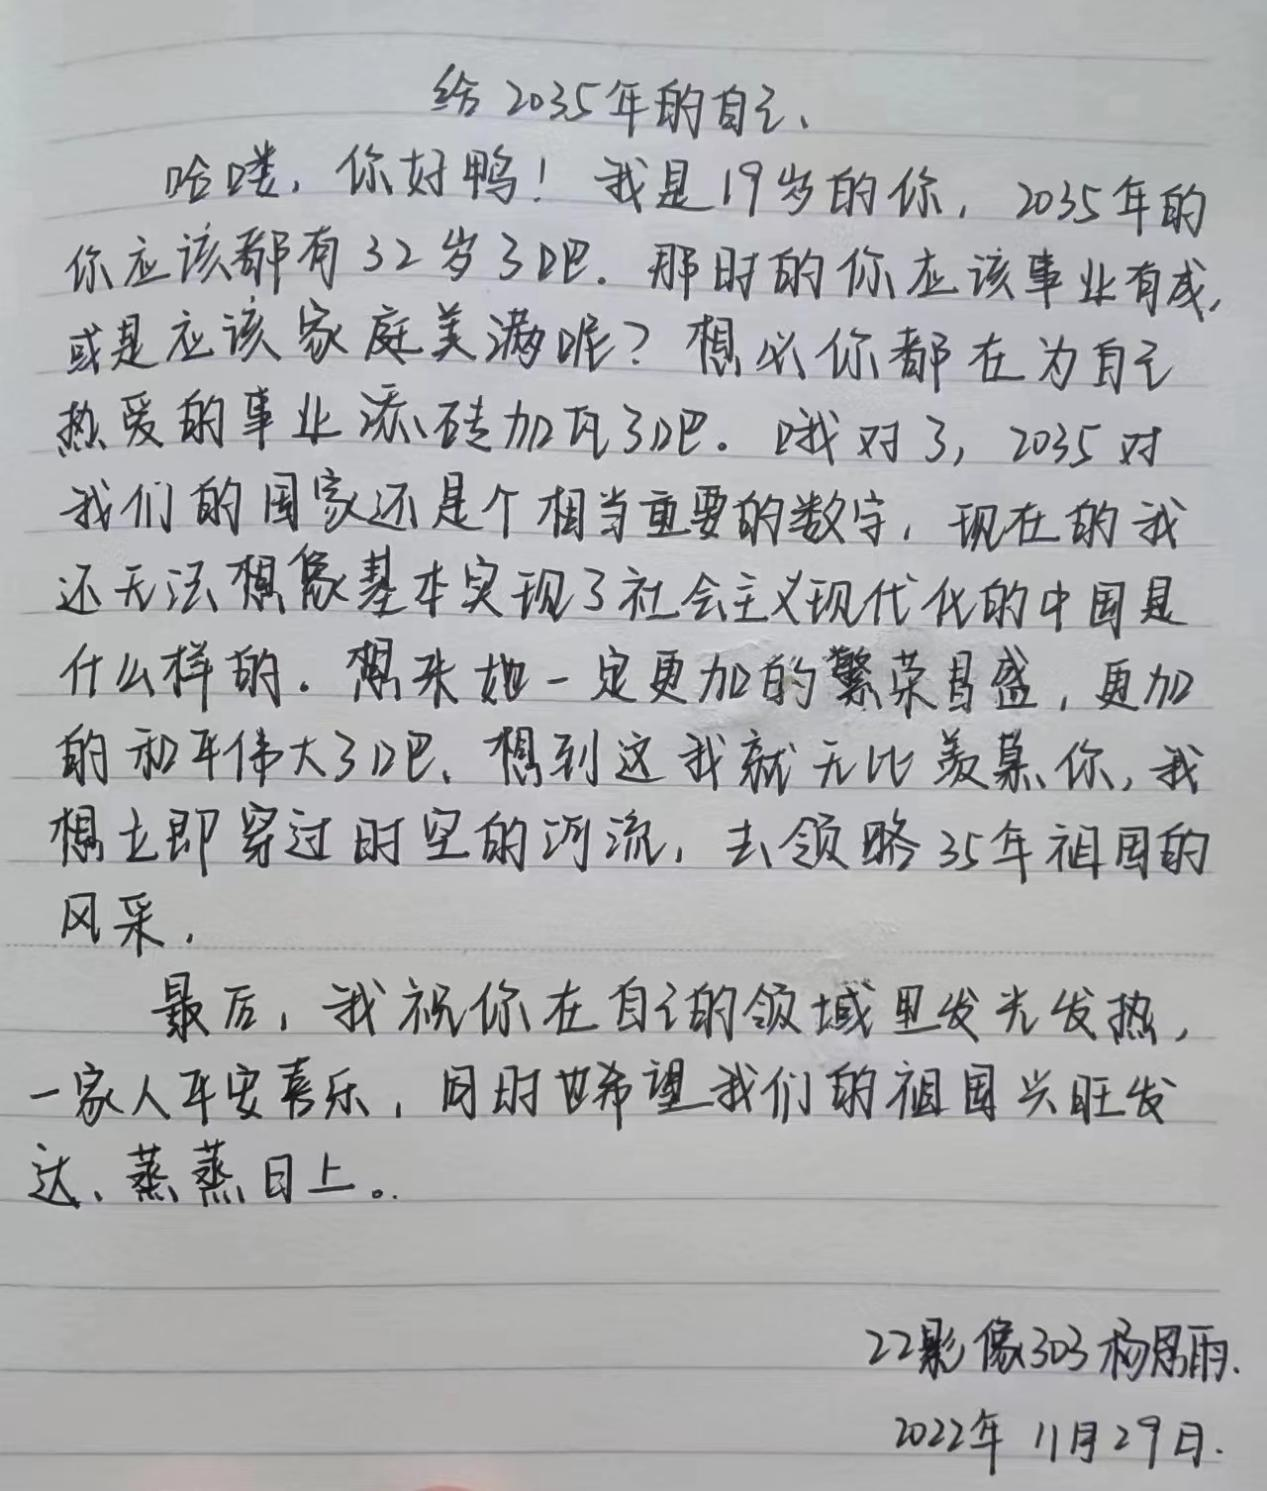 给2035年的自己、
哈喽,你好鸭!我是19岁的你,2035年的
你应该都有32岁了吧.那时的你应该事业有成,
或是应该家庭美满呢?想必你都在为自己
热爱的事业添砖加瓦了吧。哦对了,2035对
我们的国家还是个相当重要的数字,现在的我
还无法想像基本实现了社会主义现代化的中国是
什么样的.想来她一定更加的繁荣昌盛,更加
的和平伟大了吧、想到这我就无比羡慕你,我
想立即穿过时空的河流,去领略35年祖国的
风采.
最后,我祝你在自己的领域里发光发热,
一家人平安喜乐,同时也希望我们的祖国兴旺发
达、蒸蒸日上。
22影像303杨雨.
2022年11月29日.